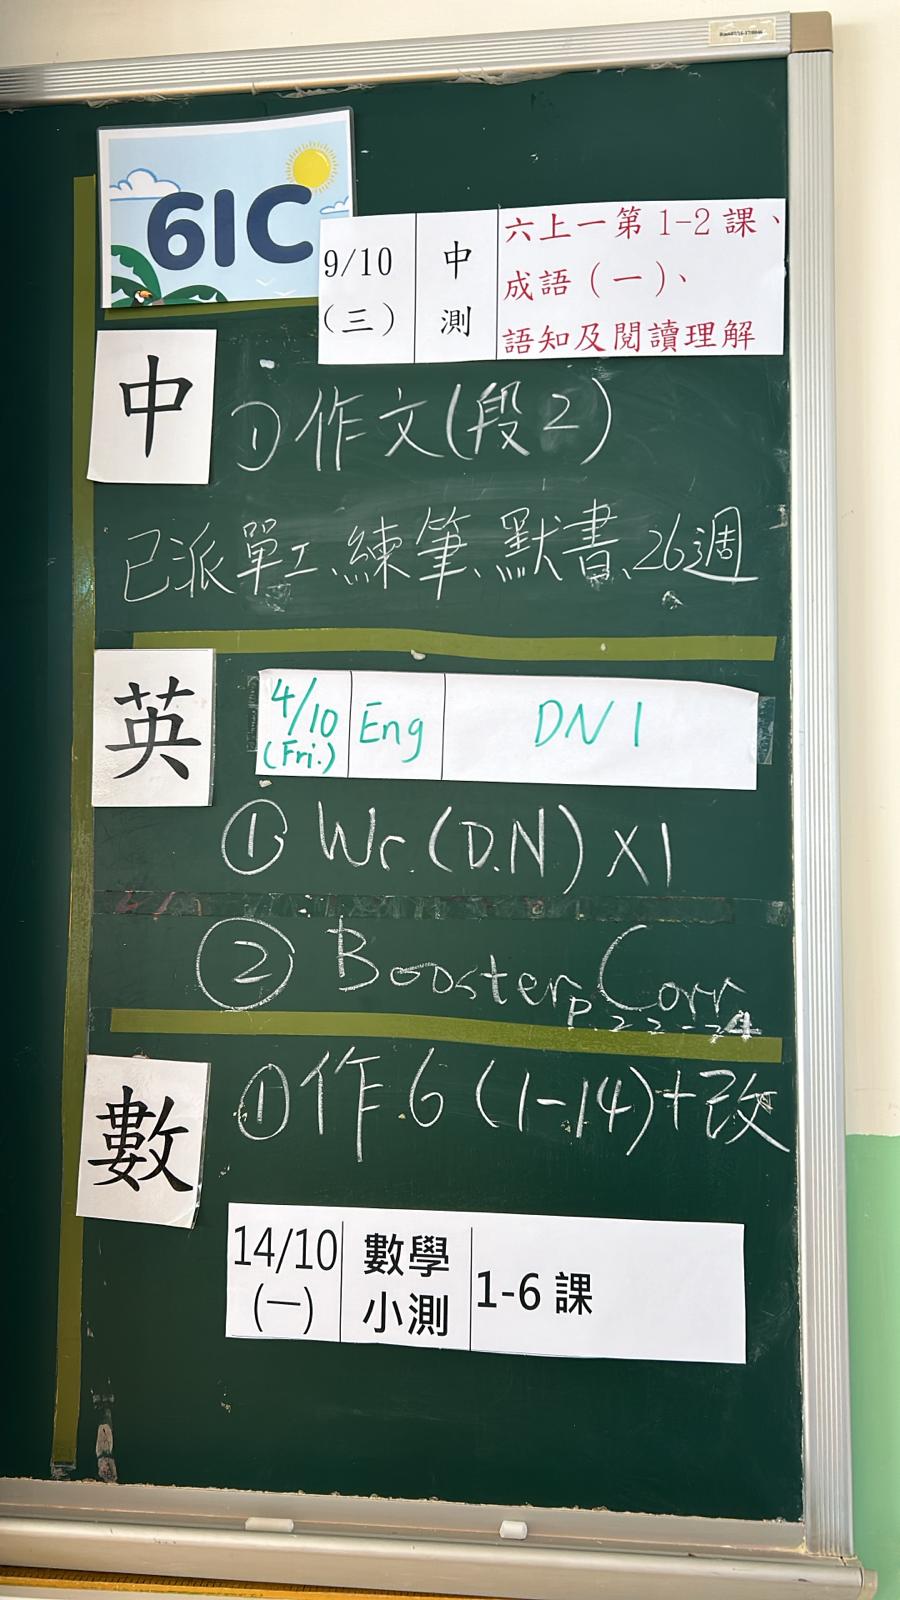 61C
9/10
(三)
中
測
六上一第 1-2 課、
成語(一)、
語知及閱讀理解
中
① 作文(段2)
已派單工、練筆、默書、26週
英
4/10
(Fri.)
Eng
DN 1
① Wr. (D.N) X1
② Booster Corr
P.22-24
數
① 作6 (1-14)+改
14/10
(一)
數學
小測
1-6 課